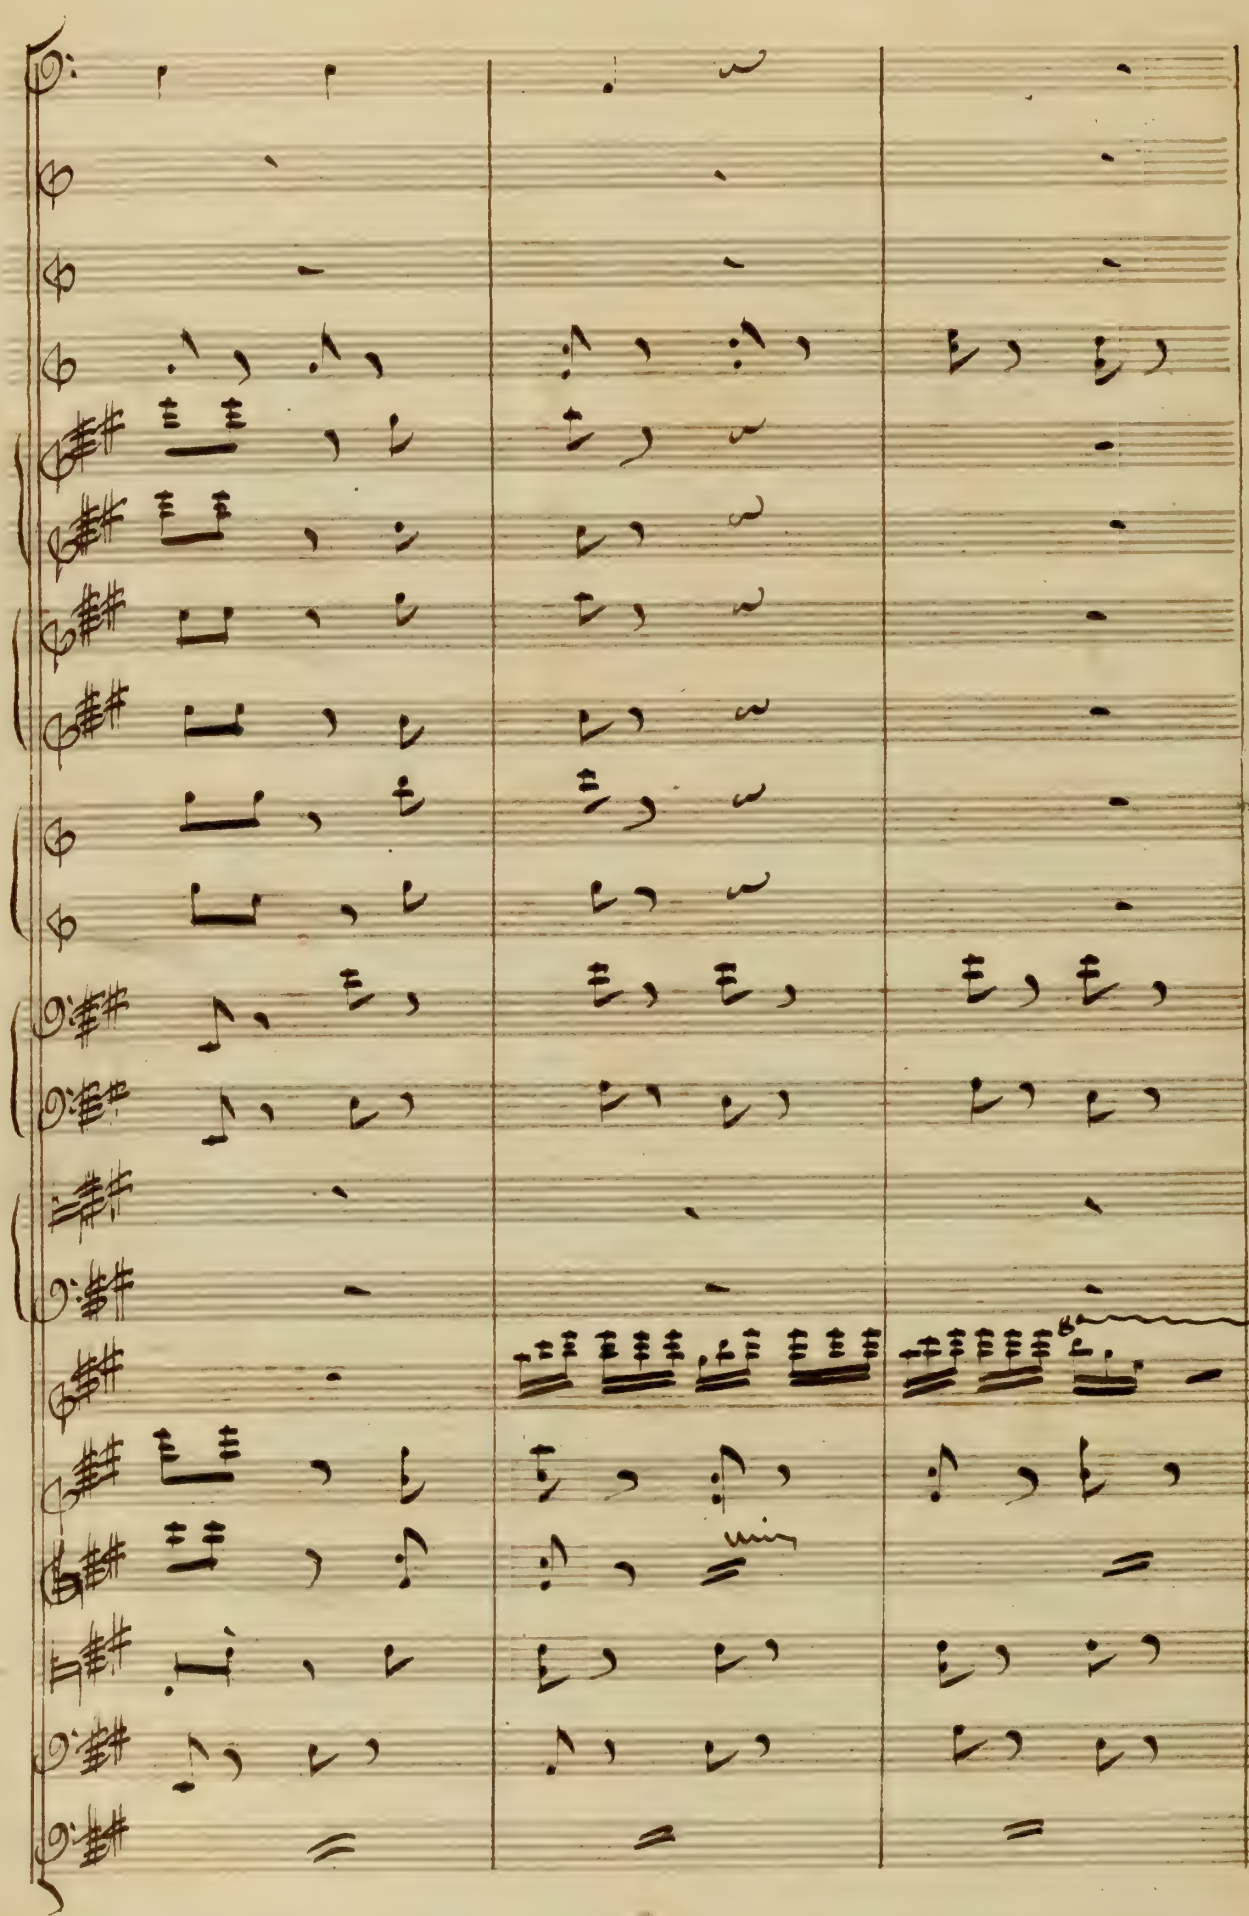 8
unis